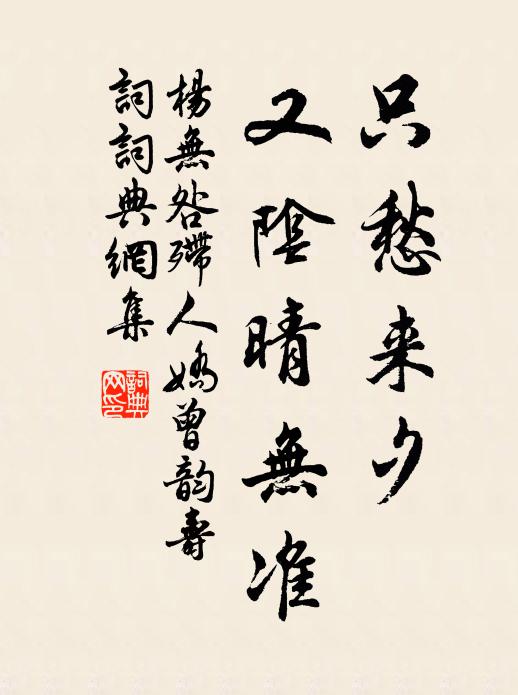 只愁来夕
又陰晴無准
楊無咎殢人嬌曾韵壽
詞詞典網集
詞典网印